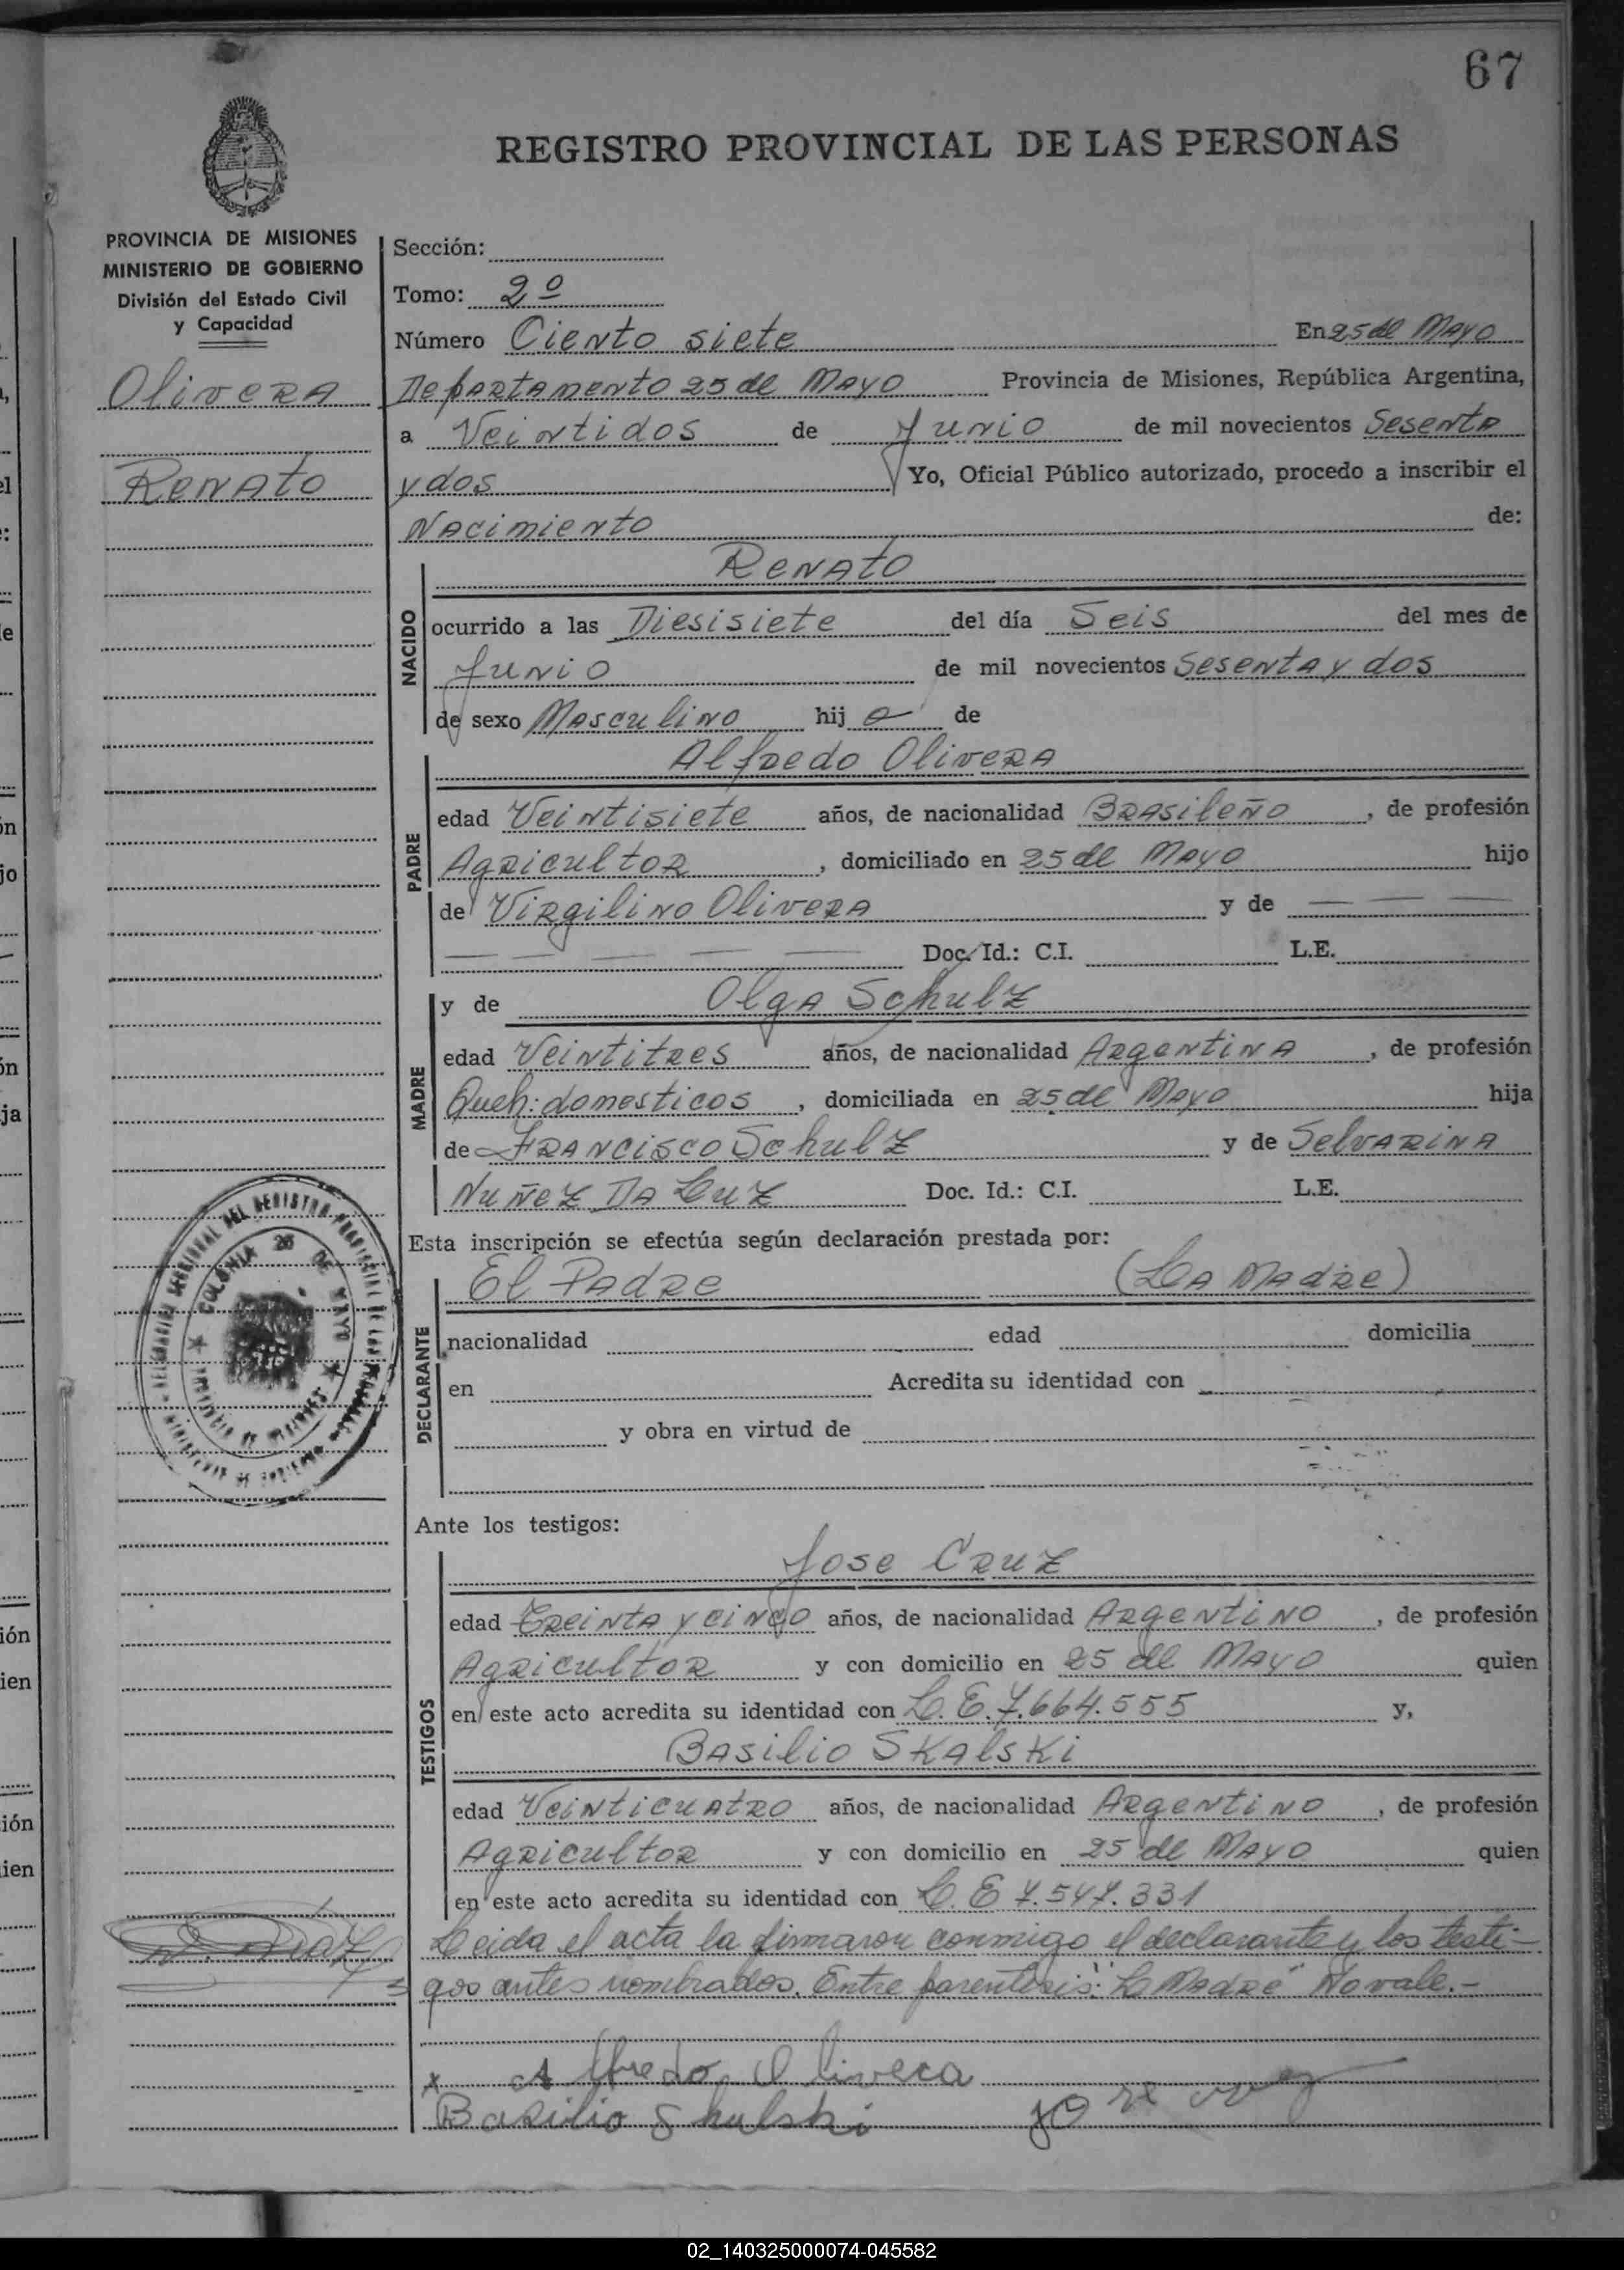 67
REGISTRO PROVINCIAL DE LAS PERSONAS
PROVINCIA DE MISIONES
MINISTERIO DE GOBIERNO
División del Estado Civil
y Capacidad
Olivera
Renato
Sección:
Tomo: 2º
Número Ciento siete En 25 de Mayo
Departamento 25 de Mayo Provincia de Misiones, República Argentina,
a Veintidos de Junio de mil novecientos Sesenta
y dos Yo, Oficial Público autorizado, procedo a inscribir el
Nacimiento de:
Renato
NACIDO
ocurrido a las Diesisiete del día Seis del mes de
Junio de mil novecientos Sesenta y dos
de sexo Masculino hij o de
Alfredo Olivera
PADRE
edad Veintisiete años, de nacionalidad Brasileño, de profesión
Agricultor, domiciliado en 25 de Mayo hijo
de Virgilino Olivera y de — — —
— — — — — Doc. Id.: C.I. L.E.
MADRE
y de Olga Schulz
edad Veintitres años, de nacionalidad Argentina, de profesión
Queh: domesticos, domiciliada en 25 de Mayo hija
de Francisco Schulz y de Selvarina
Nuñez Da Luz Doc. Id.: C.I. L.E.
Esta inscripción se efectúa según declaración prestada por:
El Padre (La Madre)
DECLARANTE
nacionalidad edad domicilia
en Acredita su identidad con
y obra en virtud de
COLONIA 25 DE MAYO
Ante los testigos:
Jose Cruz
TESTIGOS
edad Treinta y cinco años, de nacionalidad Argentino, de profesión
Agricultor y con domicilio en 25 de Mayo quien
en este acto acredita su identidad con L.E. 7.664.555 y,
Basilio Skalski
edad Veinticuatro años, de nacionalidad Argentino, de profesión
Agricultor y con domicilio en 25 de Mayo quien
en este acto acredita su identidad con L.E 7.547.331
Leida el acta la firmaron conmigo el declarante y los testi-
gos antes nombrados. Entre parentesis: "La Madre" No vale.-
x Alfredo Olivera
Basilio Skalski Jose Cruz
02_140325000074-045582